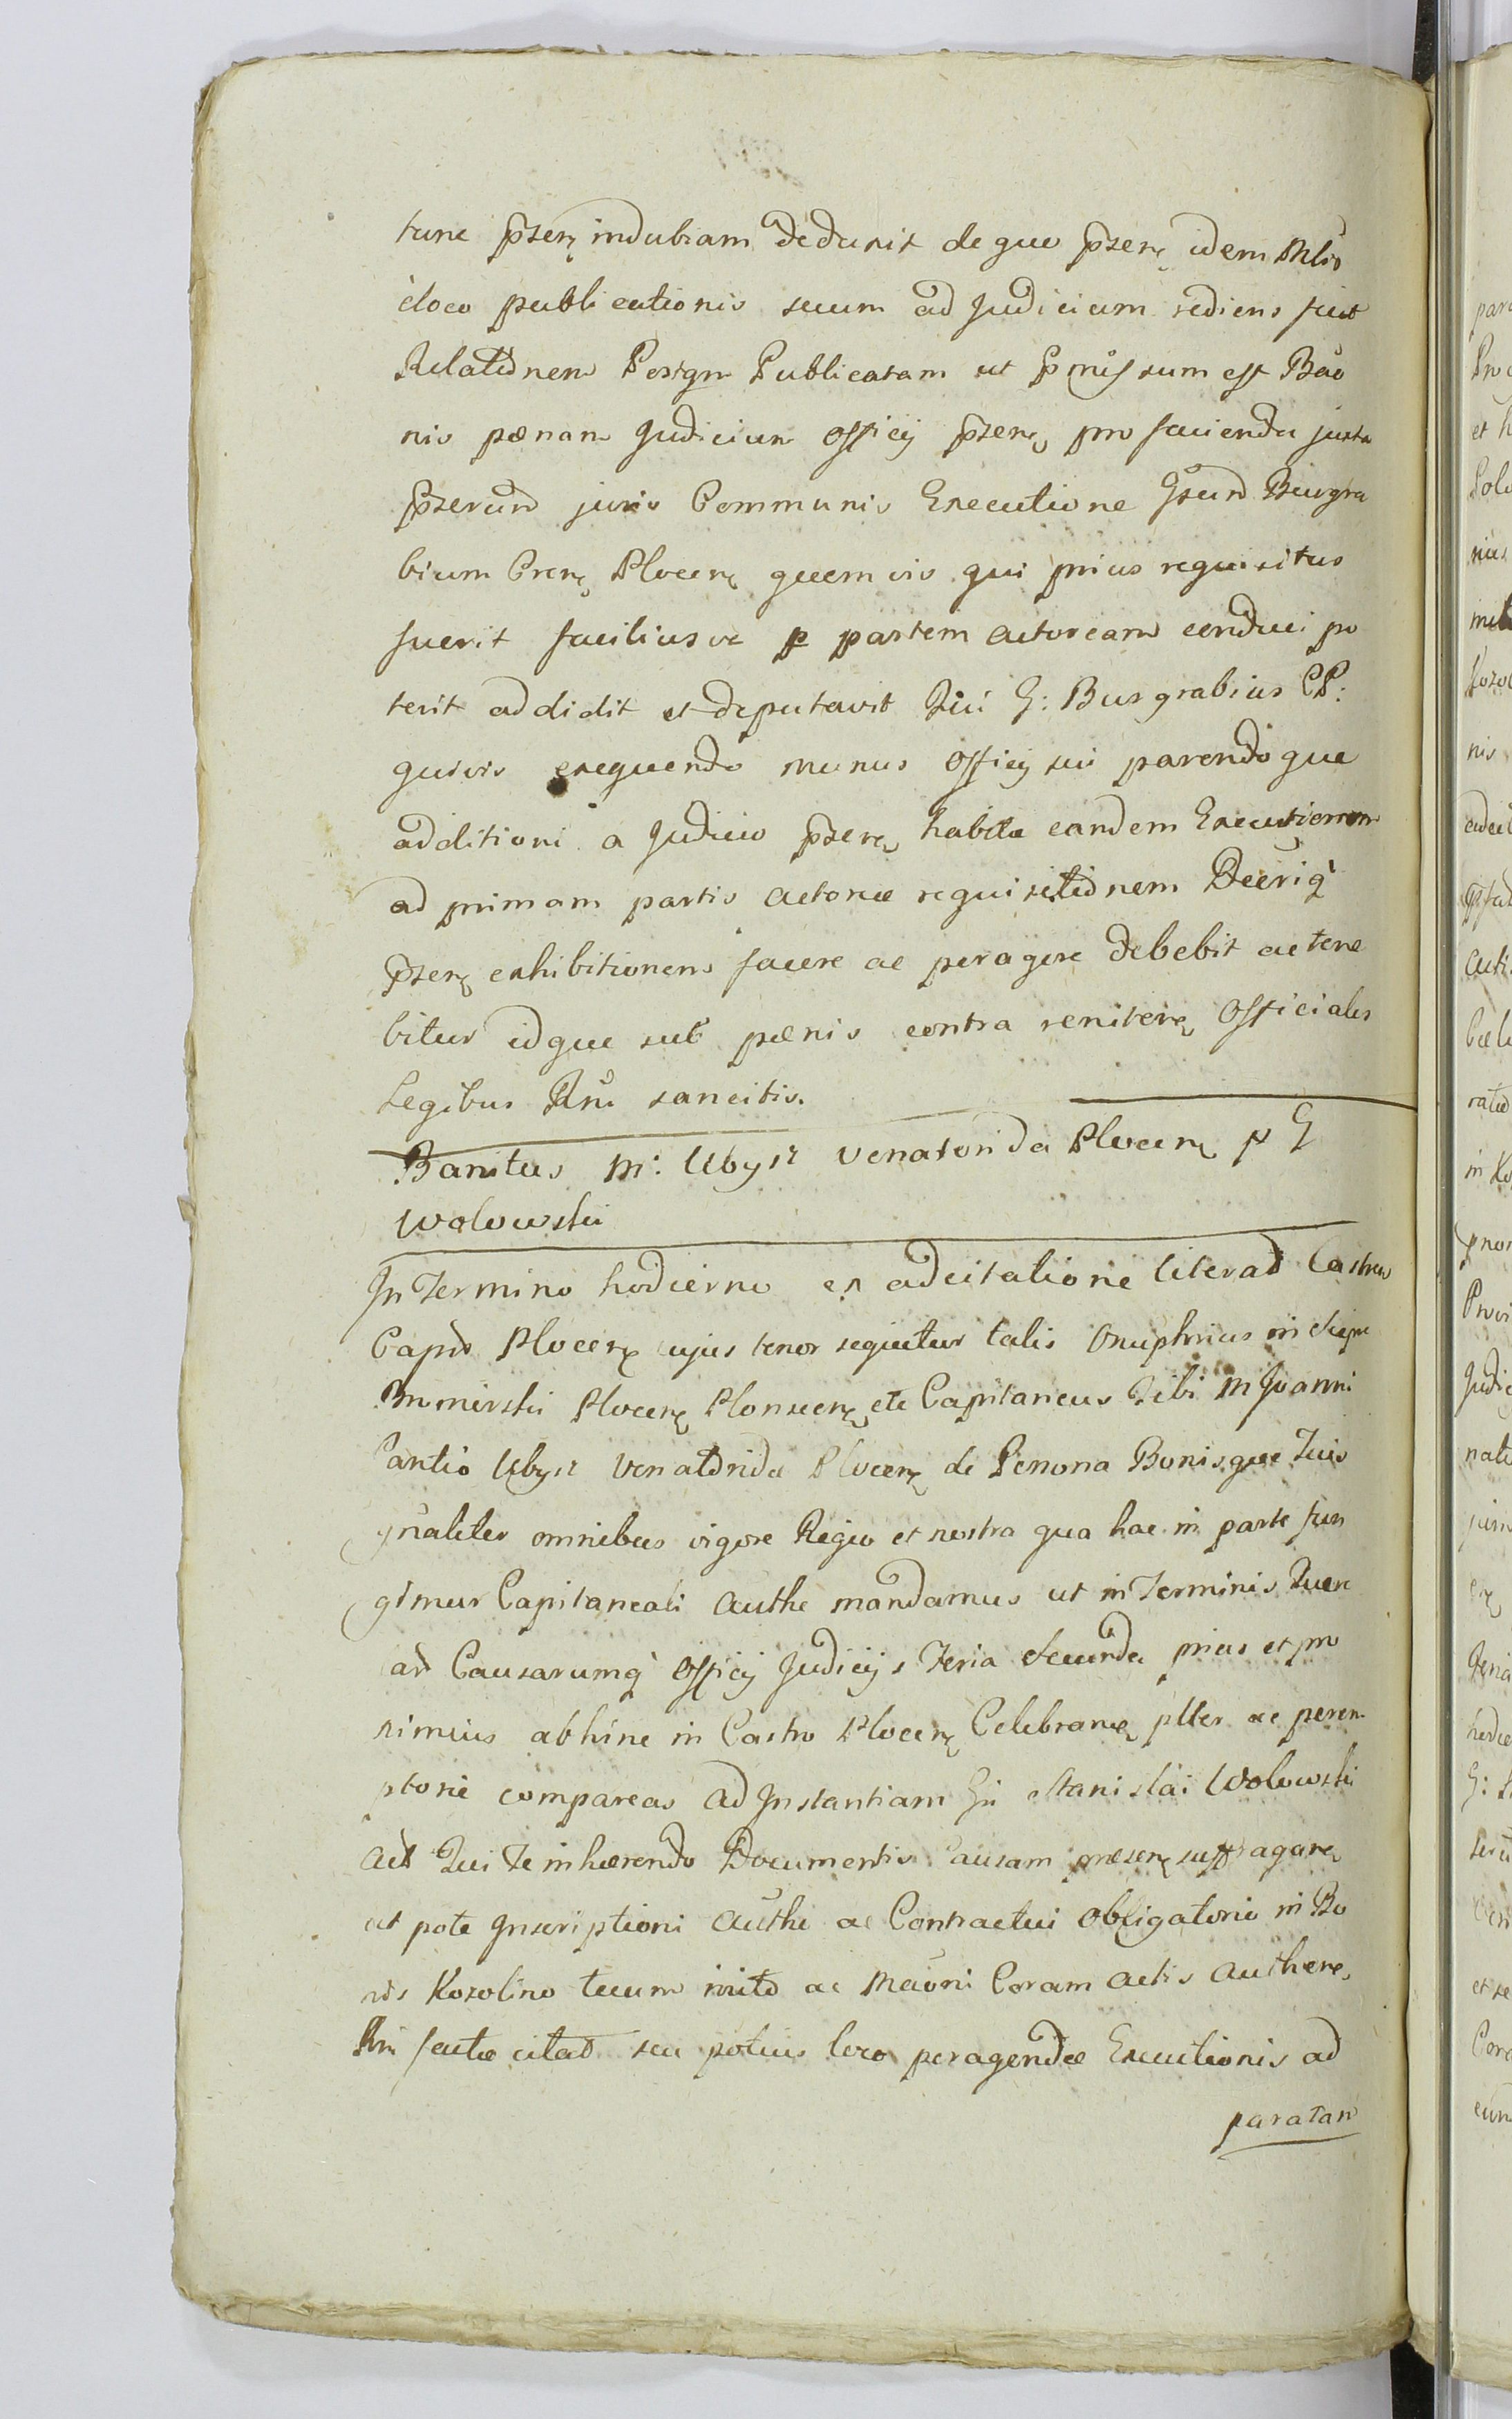 tunc pżenę indubiam deduxit de quo pżenę idem Mlis
eloco publicationis suum ad Judicium rediens fuit
Relationem Postqm Publicatam ut pmissum est Bao
nis pœnam Judicium Officij pżenę pro facienda juxta
pżerum juris Communis Executione Gżum Burgra
bium Crenę Plocenę quemvis qui prius requisitus
fuerit faciliusve p partem actoream conduci po
terit addidit et deputavit Qui G: Burgrabius CP:
quivis exequendo munus Officij sui parendoque
additioni a Judicio pżenę habitæ eandem Executionem
ad primam partis actoreæ requisitionem Decriq
pżenę exhibitionem facere ac peragere debebit ac tene
bitur idque sub pœnis contra reniten̨ Officiales
Legibus Rni sancitis.
Banitus M: Ubysz Venatorida Plocenę p G
Wolowski
In Termino hodierno ex adcitatione literad Castren
Capit Plocenę cujus tenor sequitur talis Onuphrius in Siepn
Bromirski Plocenę Plonscenę etc Capitaneus Tibi M Joanni
Cantio Ubysz Venatorida Plocenę de Persona Bonisque Tuis
gnaliter omnibus vigore Regia et nostra qua hac in parte fun
gimur Capitaneali Authe mandamus ut in Terminis Quer
ar Causarumq Officij Judicijs Feria Secunda prius et pro
ximius abhinc in Castro Plocenę Celebranę plter ac perem
ptorie compareas Ad Instantiam Gi Stanislai Wolowski
Act Qui Te inhærendo Documentis Causam præsenę suffraganę
ut pote Inscriptioni Authi ac Contractui Obligatorio in Bo
nis Kozolino tecum inito ac Mauoni Coram actis Authenę
Rni factæ citat seu potius loco peragendæ Executionis ad
paratam